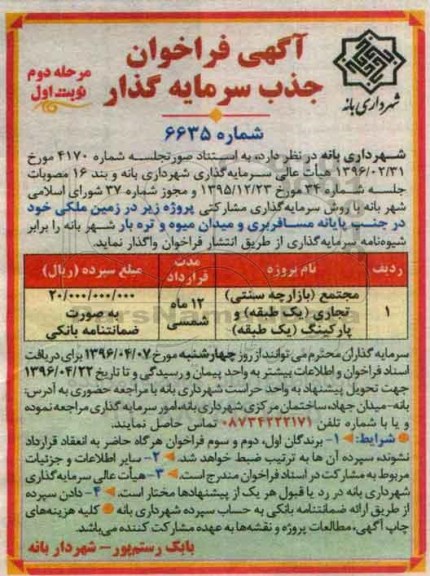 آگهی فراخوان
جذب سرمایه گذار
مرحله دوم
نوبت اول
شهرداری بانه
شماره ۶۶۳۵
شهرداری بانه در نظر دارد، به استناد صورتجلسه شماره ۴۱۷۰ مورخ
۱۳۹۶/۰۲/۳۱ هیأت عالی سرمایه‌گذاری شهرداری بانه و بند ۱۶ مصوبات
جلسه شماره ۳۴ مورخ ۱۳۹۵/۱۲/۲۳ و مجوز شماره ۳۷ شورای اسلامی
شهر بانه با روش سرمایه‌گذاری مشارکتی پروژه زیر در زمین ملکی خود
در جنب پایانه مسافربری و میدان میوه و تره بار شهر بانه را برابر
شیوه‌نامه سرمایه‌گذاری از طریق انتشار فراخوان واگذار نماید.
ردیف نام پروژه مدت قرارداد مبلغ سپرده (ریال)
۱ مجتمع (بازارچه سنتی) تجاری (یک طبقه) و پارکینگ (یک طبقه) ۱۲ ماه شمسی ۲۰/۰۰۰/۰۰۰/۰۰۰ به صورت ضمانتنامه بانکی
سرمایه گذاران محترم می توانند از روز چهارشنبه مورخ ۱۳۹۶/۰۴/۰۷ برای دریافت
اسناد فراخوان و اطلاعات بیشتر به واحد پیمان و رسیدگی و تا تاریخ ۱۳۹۶/۰۴/۲۲
جهت تحویل پیشنهاد به واحد حراست شهرداری بانه با مراجعه حضوری به آدرس:
بانه-میدان جهاد، ساختمان مرکزی شهرداری بانه، امور سرمایه گذاری مراجعه نموده
و یا با شماره تلفن ۰۸۷۳۴۲۲۲۱۷۱ تماس حاصل نمایند.
شرایط: ۱- برندگان اول، دوم و سوم فراخوان هرگاه حاضر به انعقاد قرارداد
نشوند، سپرده آن ها به ترتیب ضبط خواهد شد. ۲- سایر اطلاعات و جزئیات
مربوط به مشارکت در اسناد فراخوان مندرج است. ۳- هیأت عالی سرمایه‌گذاری
شهرداری بانه در رد یا قبول هر یک از پیشنهادها مختار است. ۴- دادن سپرده
از طریق ارائه ضمانتنامه بانکی به حساب سپرده شهرداری بانه کلیه هزینه‌های
چاپ آگهی، مطالعات پروژه و نقشه‌ها به عهده مشارکت کننده می‌باشد.
بابک رستم‌پور – شهردار بانه